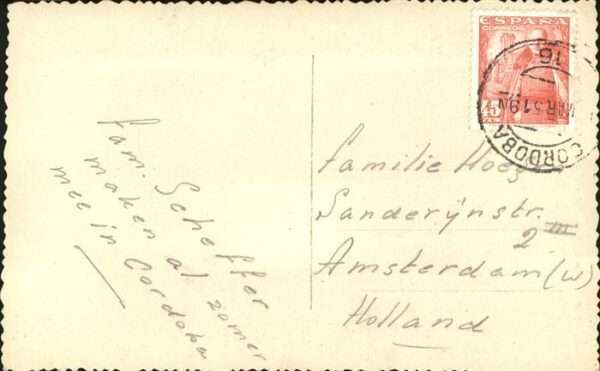 fam. Scheffer
maken al zomer
mee in Cordoba
ESPAÑA
CORREOS
45
CORDOBA
16 MAR 51 9N
Familie Hoes
Sanderijnstr.
2
Amsterdam (W)
Holland